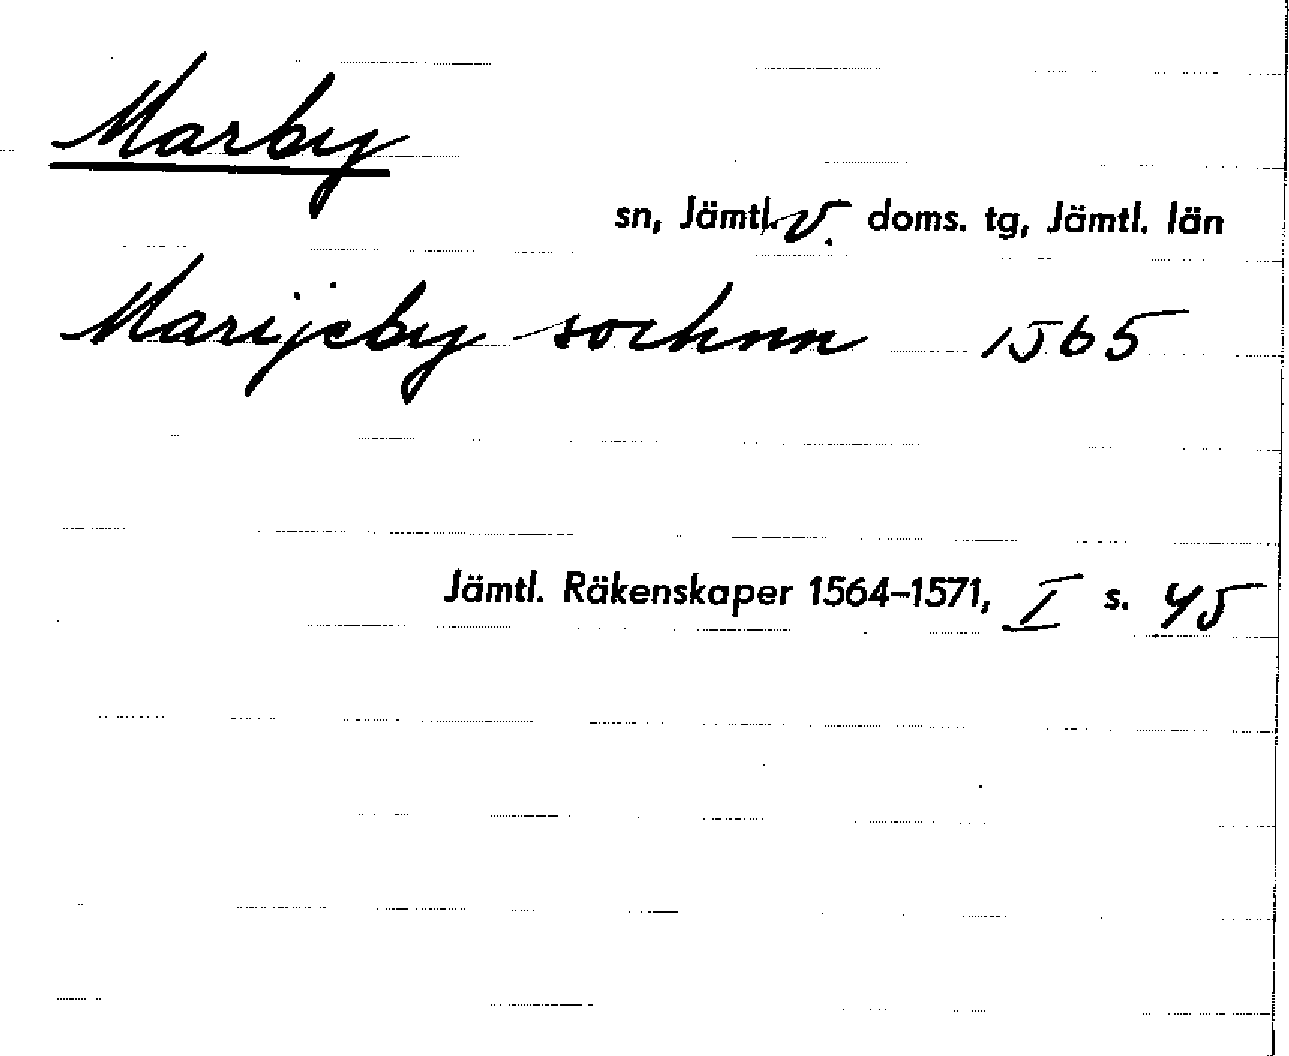 Marby
sn, Jämtl. v. doms. tg, Jämtl. län
Marijeby sochnn 1565
Jämtl. Räkenskaper 1564–1571, I s. 45